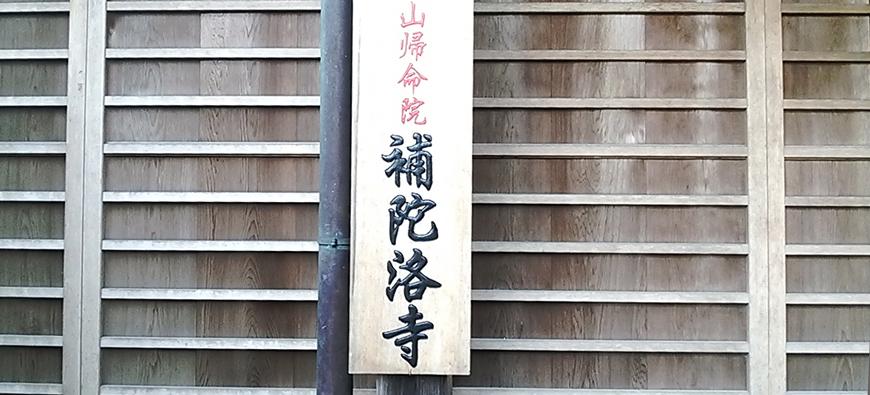 山帰命院
補陀洛寺